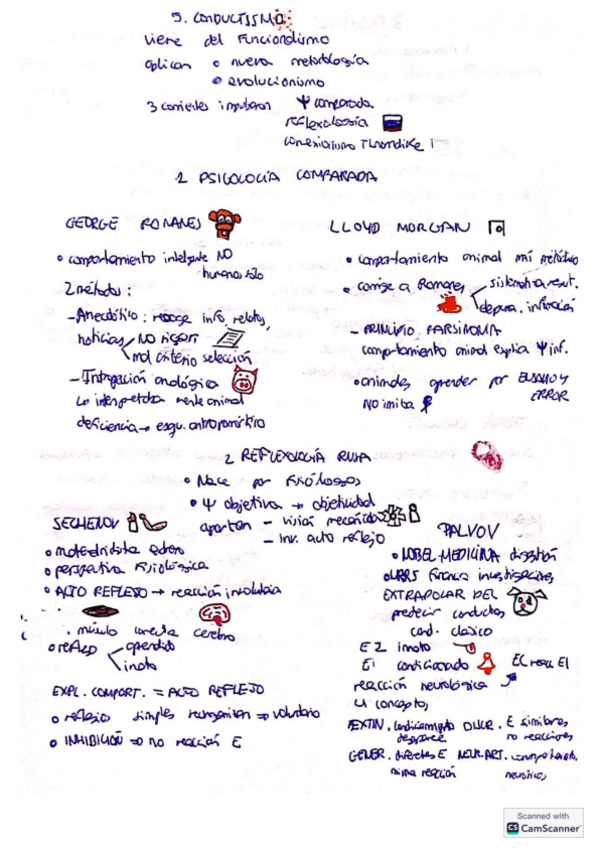 5. CONDUCTISMO
viene del Funcionalismo
aplican • nueva metodología
• evolucionismo
3 corrientes impulsaron Ψ comparada
reflexología
conexionismo Thorndike
1 PSICOLOGÍA COMPARADA
GEORGE ROMANES
• comportamiento inteligente NO
humanos sólo
2 métodos:
- Anecdótico: recoge info relatos,
noticias NO rigor
mal criterio selección
- Introspección analógica
interpretaba mente animal
deficiencia → esqu. antropomórfico
LLOYD MORGAN
• comportamiento animal más metódico
• corrige a Romanes sistematiza
depura. información
- PRINCIPIO PARSIMONIA
comportamiento animal explica Ψ inf.
• animales aprender por ENSAYO Y
ERROR
NO imita
2 REFLEXOLOGÍA RUSA
• Nace por fisiólogos
• Ψ objetiva → objetividad
aportan - visión mecanicista
- inv. acto reflejo
SECHENOV
• materialista
• perspectiva fisiológica
• ACTO REFLEJO → reacción involuntaria
. músculo conecta cerebro
• reflejo aprendido
innato
EXPL. COMPORT. = ACTO REFLEJO
• reflejos simples reorganizan ⇒ voluntario
• INHIBICIÓN ⇒ no reacción E
PAVLOV
• NOBEL MEDICINA digestión
• URSS financia investigaciones
EXTRAPOLAR DEL
predecir conductas
cond. clásico
E innato
E condicionado
reacción neurológica
4 conceptos
EXTIN. condicionamiento
desaparece
DISCR. E similares
no reacciones
GENER. diferentes E
misma reacción
NEUR. ART. comportamiento
neurótico
Scanned with
CS CamScanner